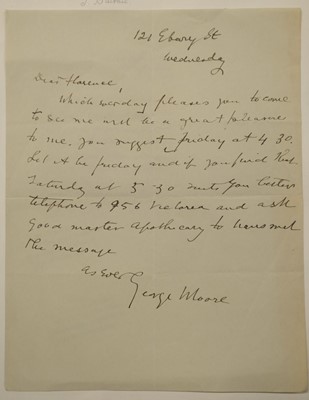 121 Ebury St
Wednesday
Dear Florence,
Which weekday pleases you to come
to see me will be a great pleasure
to me, you suggest friday at 4 30.
Let it be friday and if you find that
Saturday at 5 30 suits you better
telephone to 956 Victoria and ask
Good master Apothecary to transmit
the message
as ever
George Moore